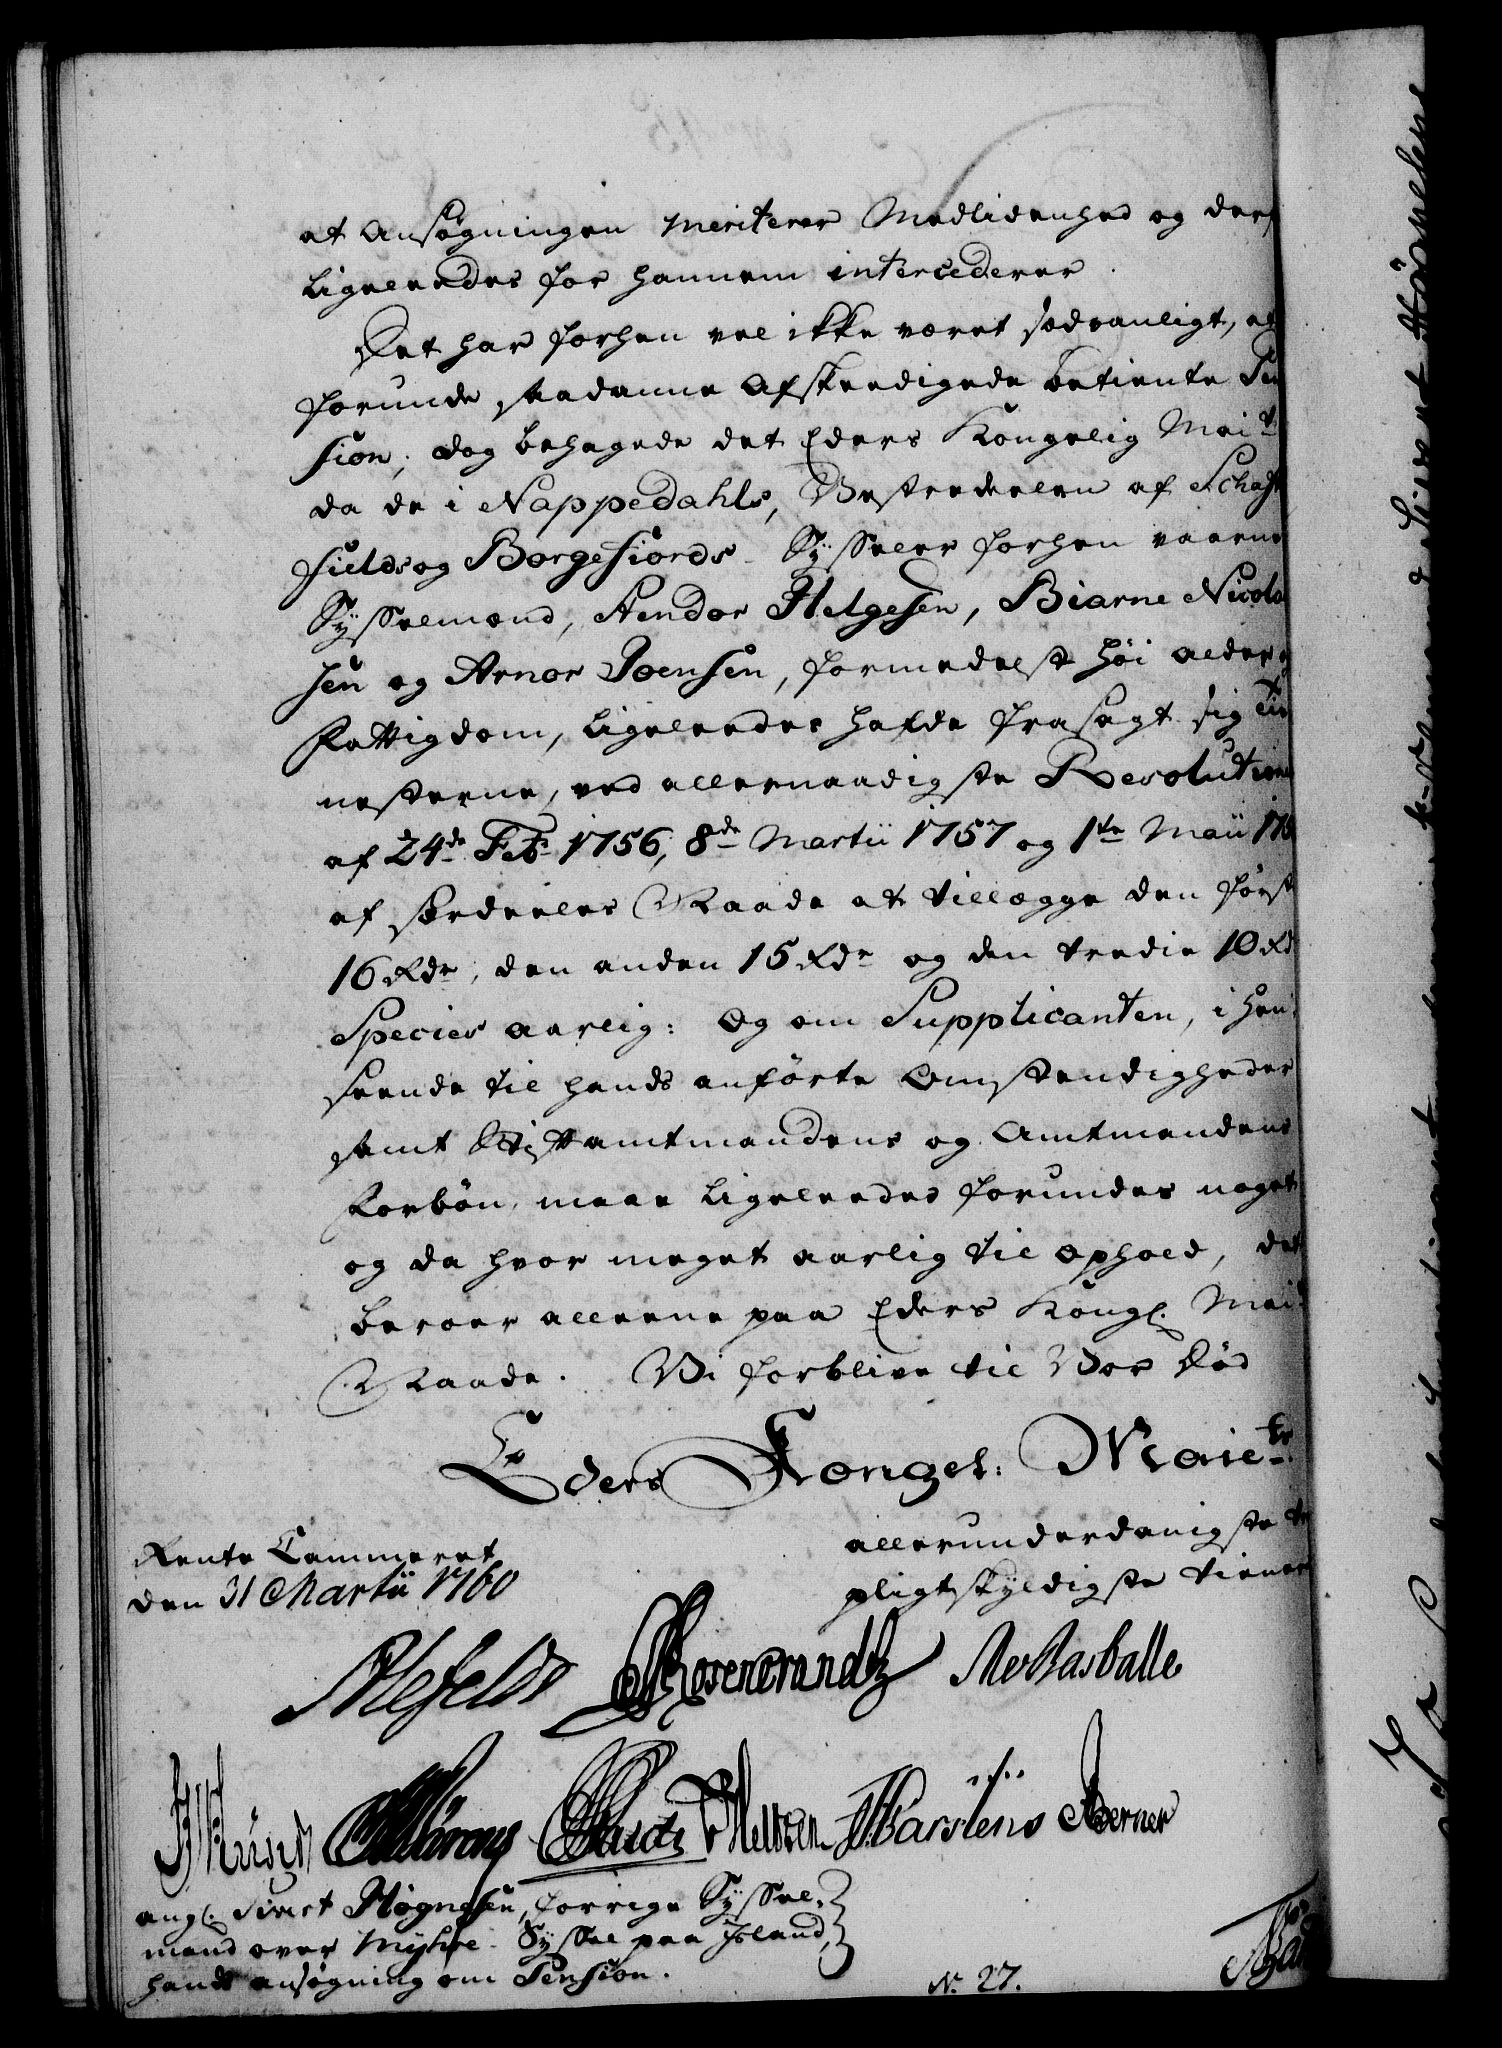 at Ansøgningen meriterer Medlidenhed og derf
ligeleedes for hannem intercederer.
Det har forhen vel ikke været sædvanligt, at
forunde saadanne afskeedigede betiente Pen
sion, dog behagede det Eders Kongelig Mai:t
da de i Nappedahls, Vesterdeelen af Schaft
fields og Borgefiords Sysseler forhen værende
Sysselmænd, Hendor Helgesen, Biarne Nicola
sen og Arnor Joensen, formedelst høi alder og
Fattigdom, ligeleedes hafde frasagt sig Tie
nesterne, ved allernaadigste Resolutioner
af 24de Feb: 1756, 8de Martii 1757 og 1te Maii 17
af særdeeles Naade at tillægge den først
16 Rdr, den anden 15 Rdr og den tredie 10 Rd
Species aarlig: Og om Supplicanten, i hen
seende til hands anførte Omstændigheder
samt Stiftamtmandens og Amtmandens
Forbøn, maae ligeleedes forundes noget
og da hvor meget aarlig til ophold, det
beroer alleene paa Eders Kongl. Mai:t
Naade. Vi forblive til Vor Død
Eders Kongel: Maiets:
allerunderdanigste
pligtskyldigste tienere
Rente Cammeret
den 31 Martii 1760
Alefeldt Rosencrandtz Rasballe
Haidt Holtzen Karstens Berner
angl. Sivert Høgnesen, forrige Syssel-
mand over Myhre-Syssel paa Island,
hands ansøgning om Pension.
No. 27.